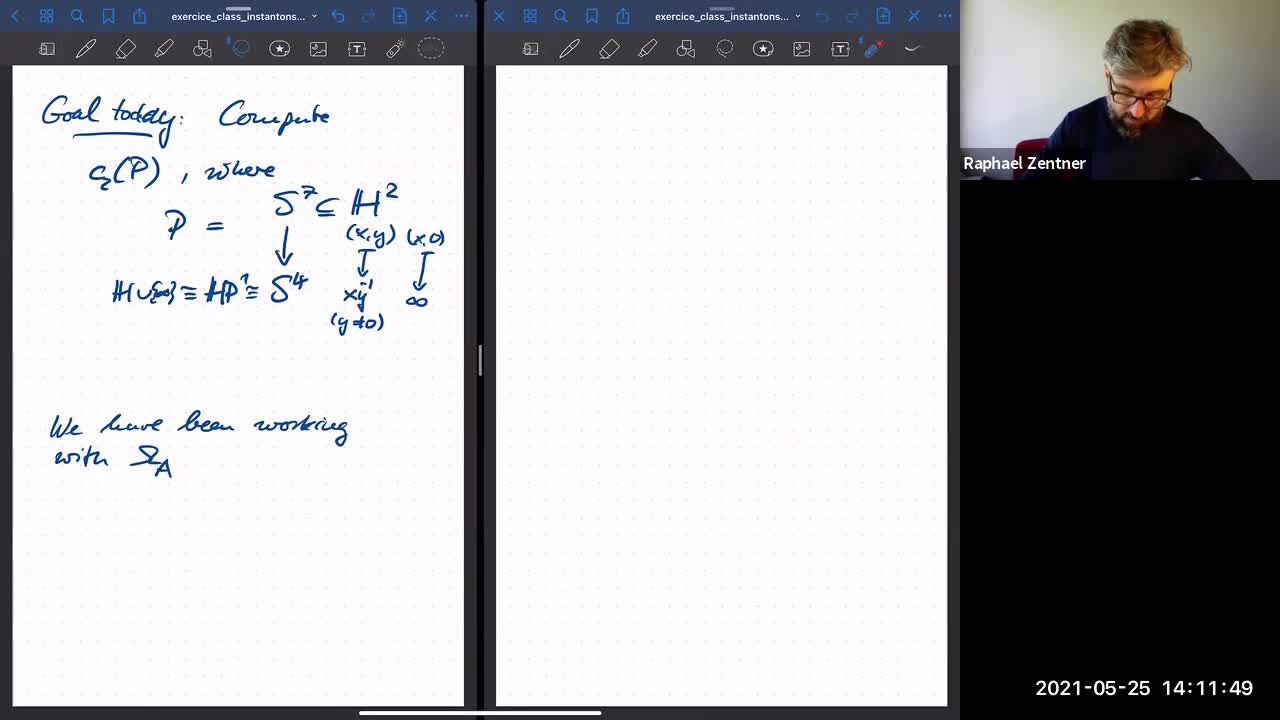 exercice_class_instantons...
exercice_class_instantons...
Goal today: Compute
c₂(P), where
P = S⁷ ⊆ ℍ²
(x,y) (x,0)
ℍ∪{∞} ≅ ℍP¹ ≅ S⁴ xy⁻¹ ∞
(y≠0)
We have been working
with Ω_A
Raphael Zentner
2021-05-25 14:11:49